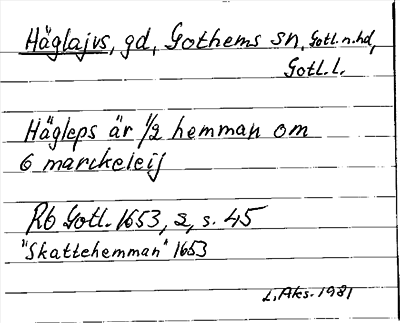 Häglajvs, gd, Gothems sn, Gotl. n. hd,
Gotl. l.
Hägleps är 1/2 hemman om
6 marckeleij
Rb Gotl. 1653, 2, s. 45
"Skattehemman" 1653
L. Aks. 1981